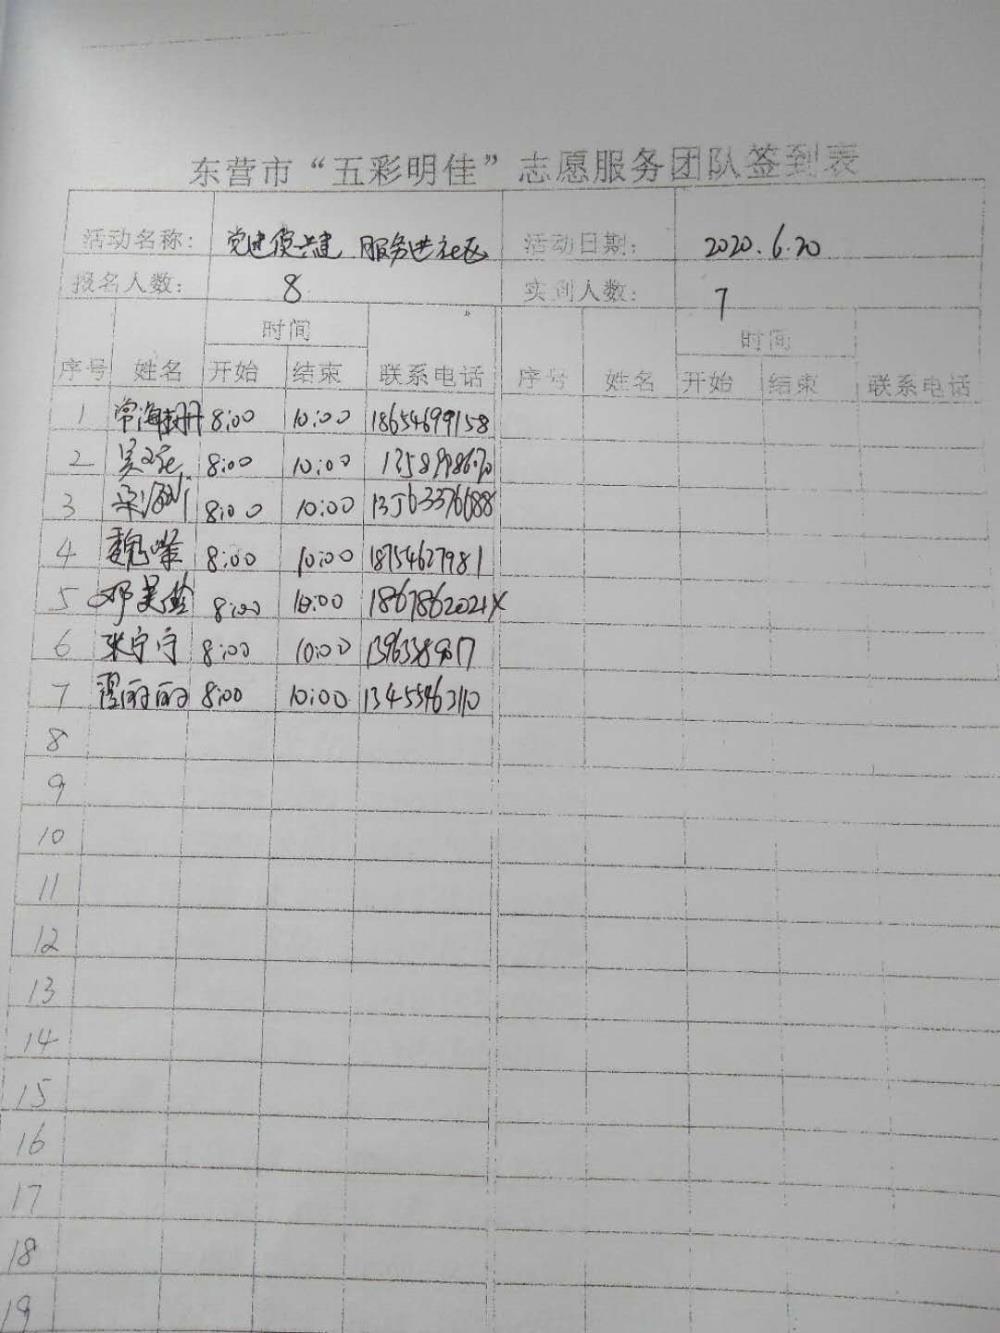 东营市“五彩明佳”志愿服务团队签到表
活动名称： 党建促共建 服务进社区 活动日期： 2020.6.20
报名人数： 8 实到人数： 7
序号 姓名 时间 联系电话 序号 姓名 时间 联系电话
开始 结束 开始 结束
1 常海 8:00 10:00 18654699158
2 8:00 10:00
3 8:00 10:00 13563376688
4 魏 8:00 10:00 18754627981
5 邓 8:00 10:00
6 张宁宁 8:00 10:00
7 丽丽 8:00 10:00
8
9
10
11
12
13
14
15
16
17
18
19